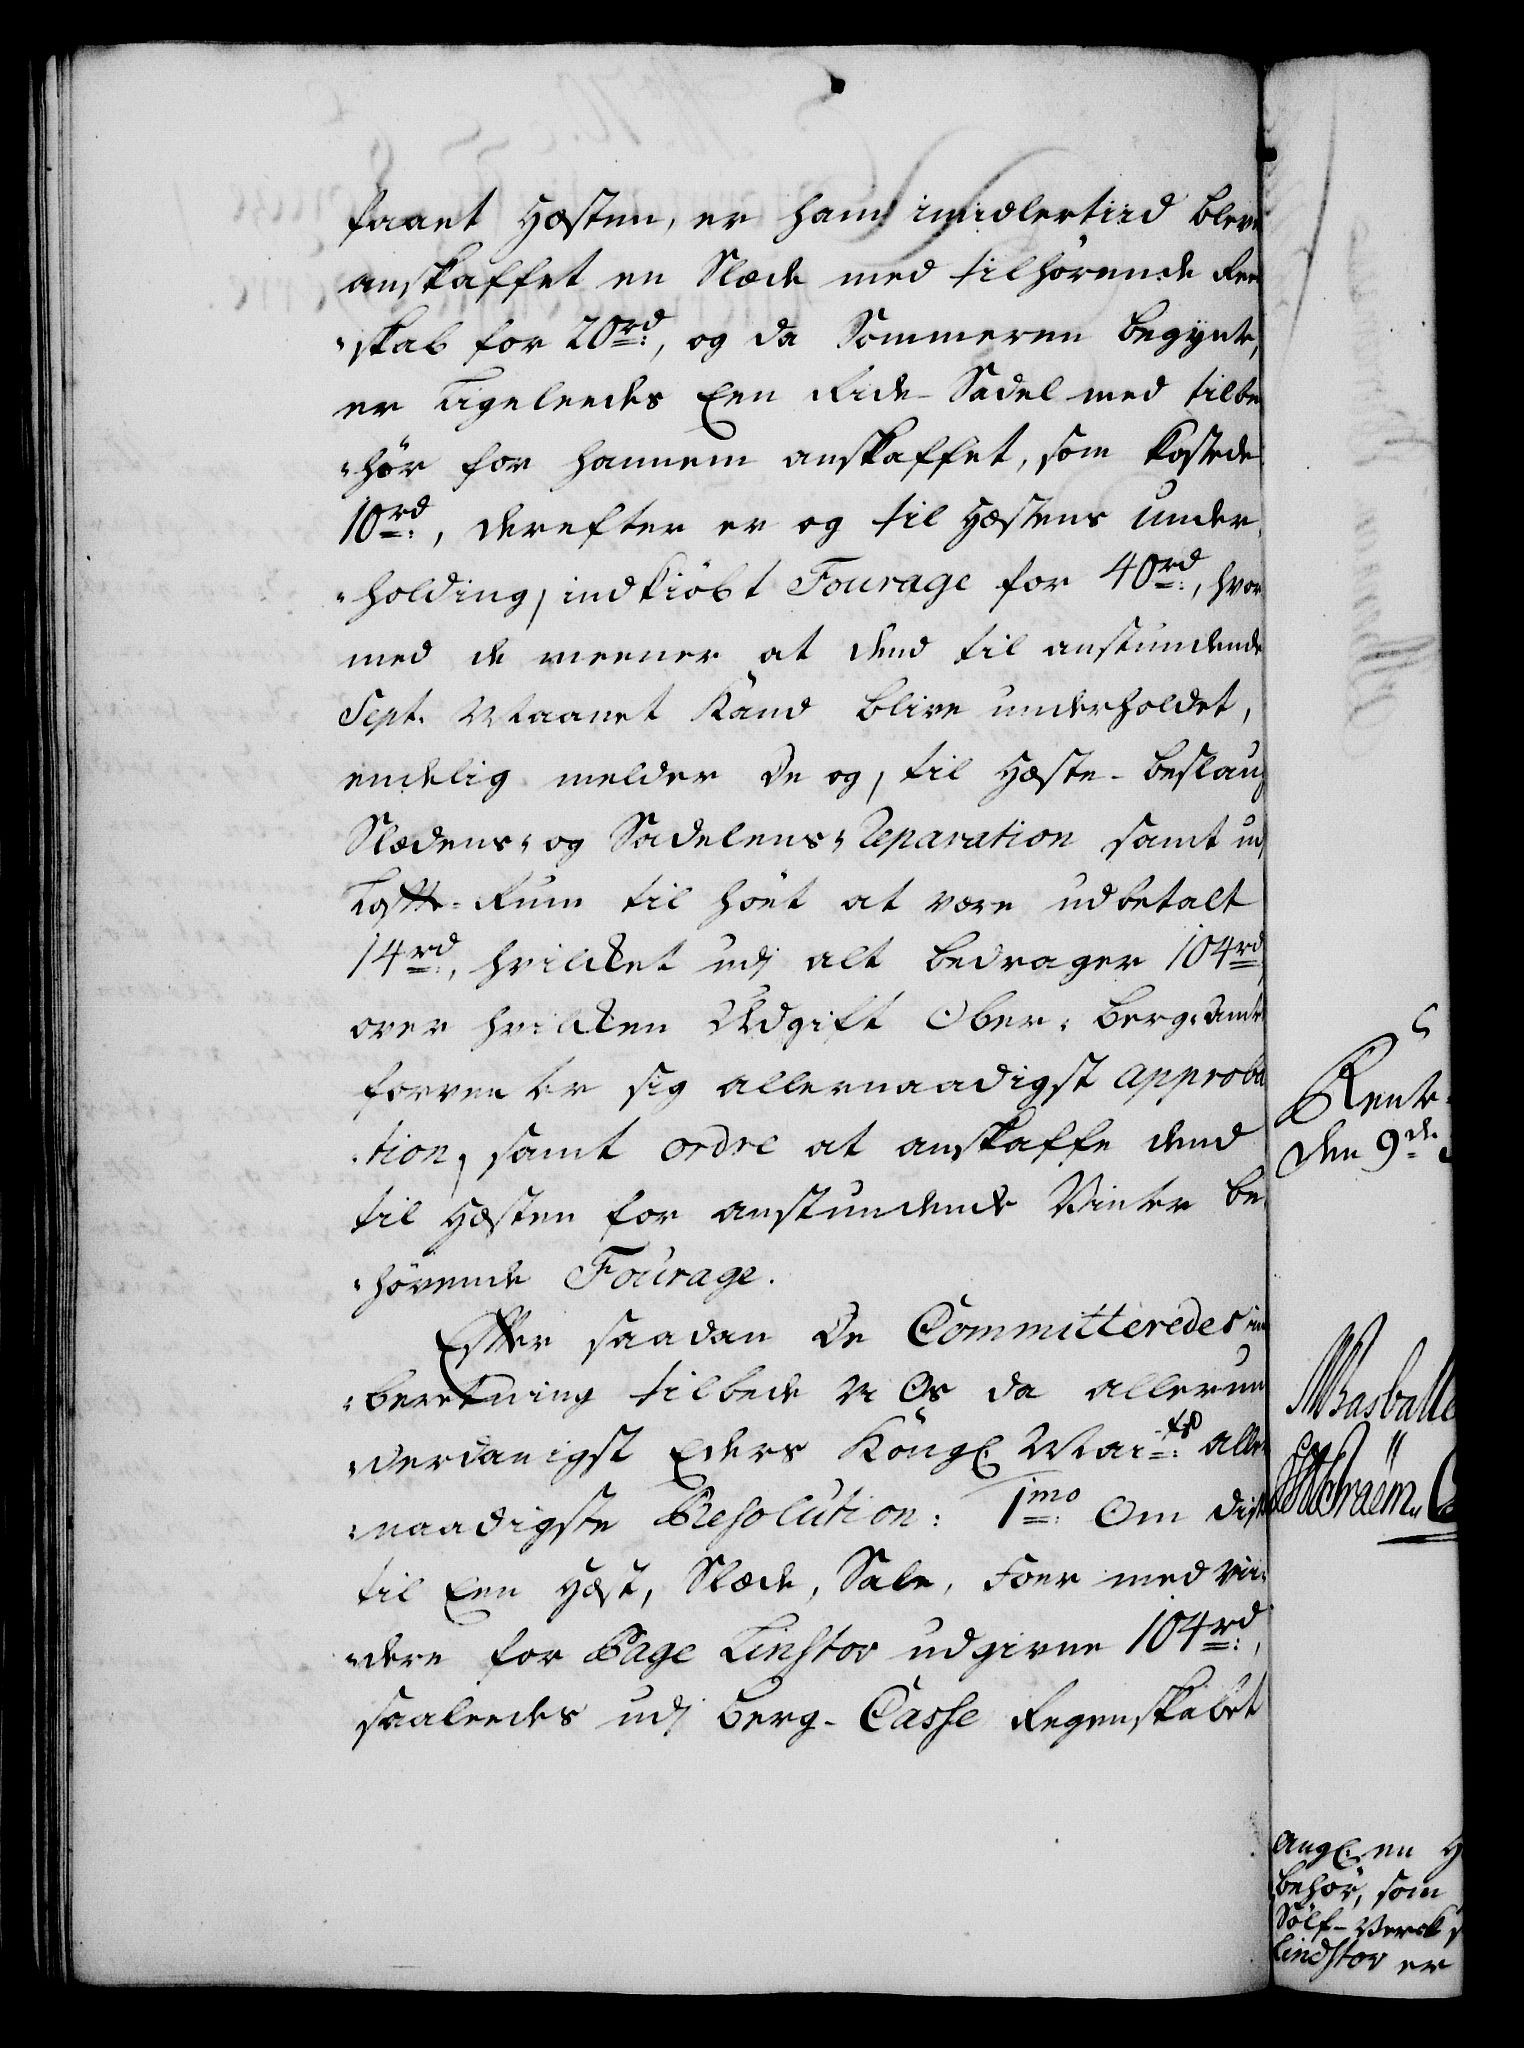 faaet Hæsten, er ham imidlertiid bleve
anskaffet en Slæde med tilhørende Ree-
-skab for 20rd:, og da Sommeren begynte,
er ligeleedes Een Ride-Sadel med tilbe
-hør for hannem anskaffet, som kostede
10rd:, derefter er og til Hæstens under-
-holding, indkiøbt Fourage for 40rd:, hvor
med de meener at dend til anstundende
Sept. Maanet kand blive underholdet,
endelig melder de og, til Hæste-beslaug
Slædens- og Sadelens- Reparation samt ud
Rum til høet at være udbetalt
14rd:, hvilcket udj alt bedrager 104rd:
over hvilcken Udgift Ober-Berg-Amtet
forventer sig allernaadigst approba
-tion, samt ordre at anskaffe dend
til Hæsten for anstundende Vinter be-
-hövende Fourage.
Efter saadan De Committeredes ind
-beretning tilbede vi Os da allerun
-derdanigst Eders Kongl. Maits: aller
-naadigste Resolution: 1mo: Om disse
til Een Hæst, Slæde, Sale, Foer med vii-
-dere for Page Linstov udgivne 104rd:,
saaleedes udj Berg-Casse Regenskabet
Rente-
den 9de
Ang. en H
behør, som
Sølf-Verck
Lindstov er